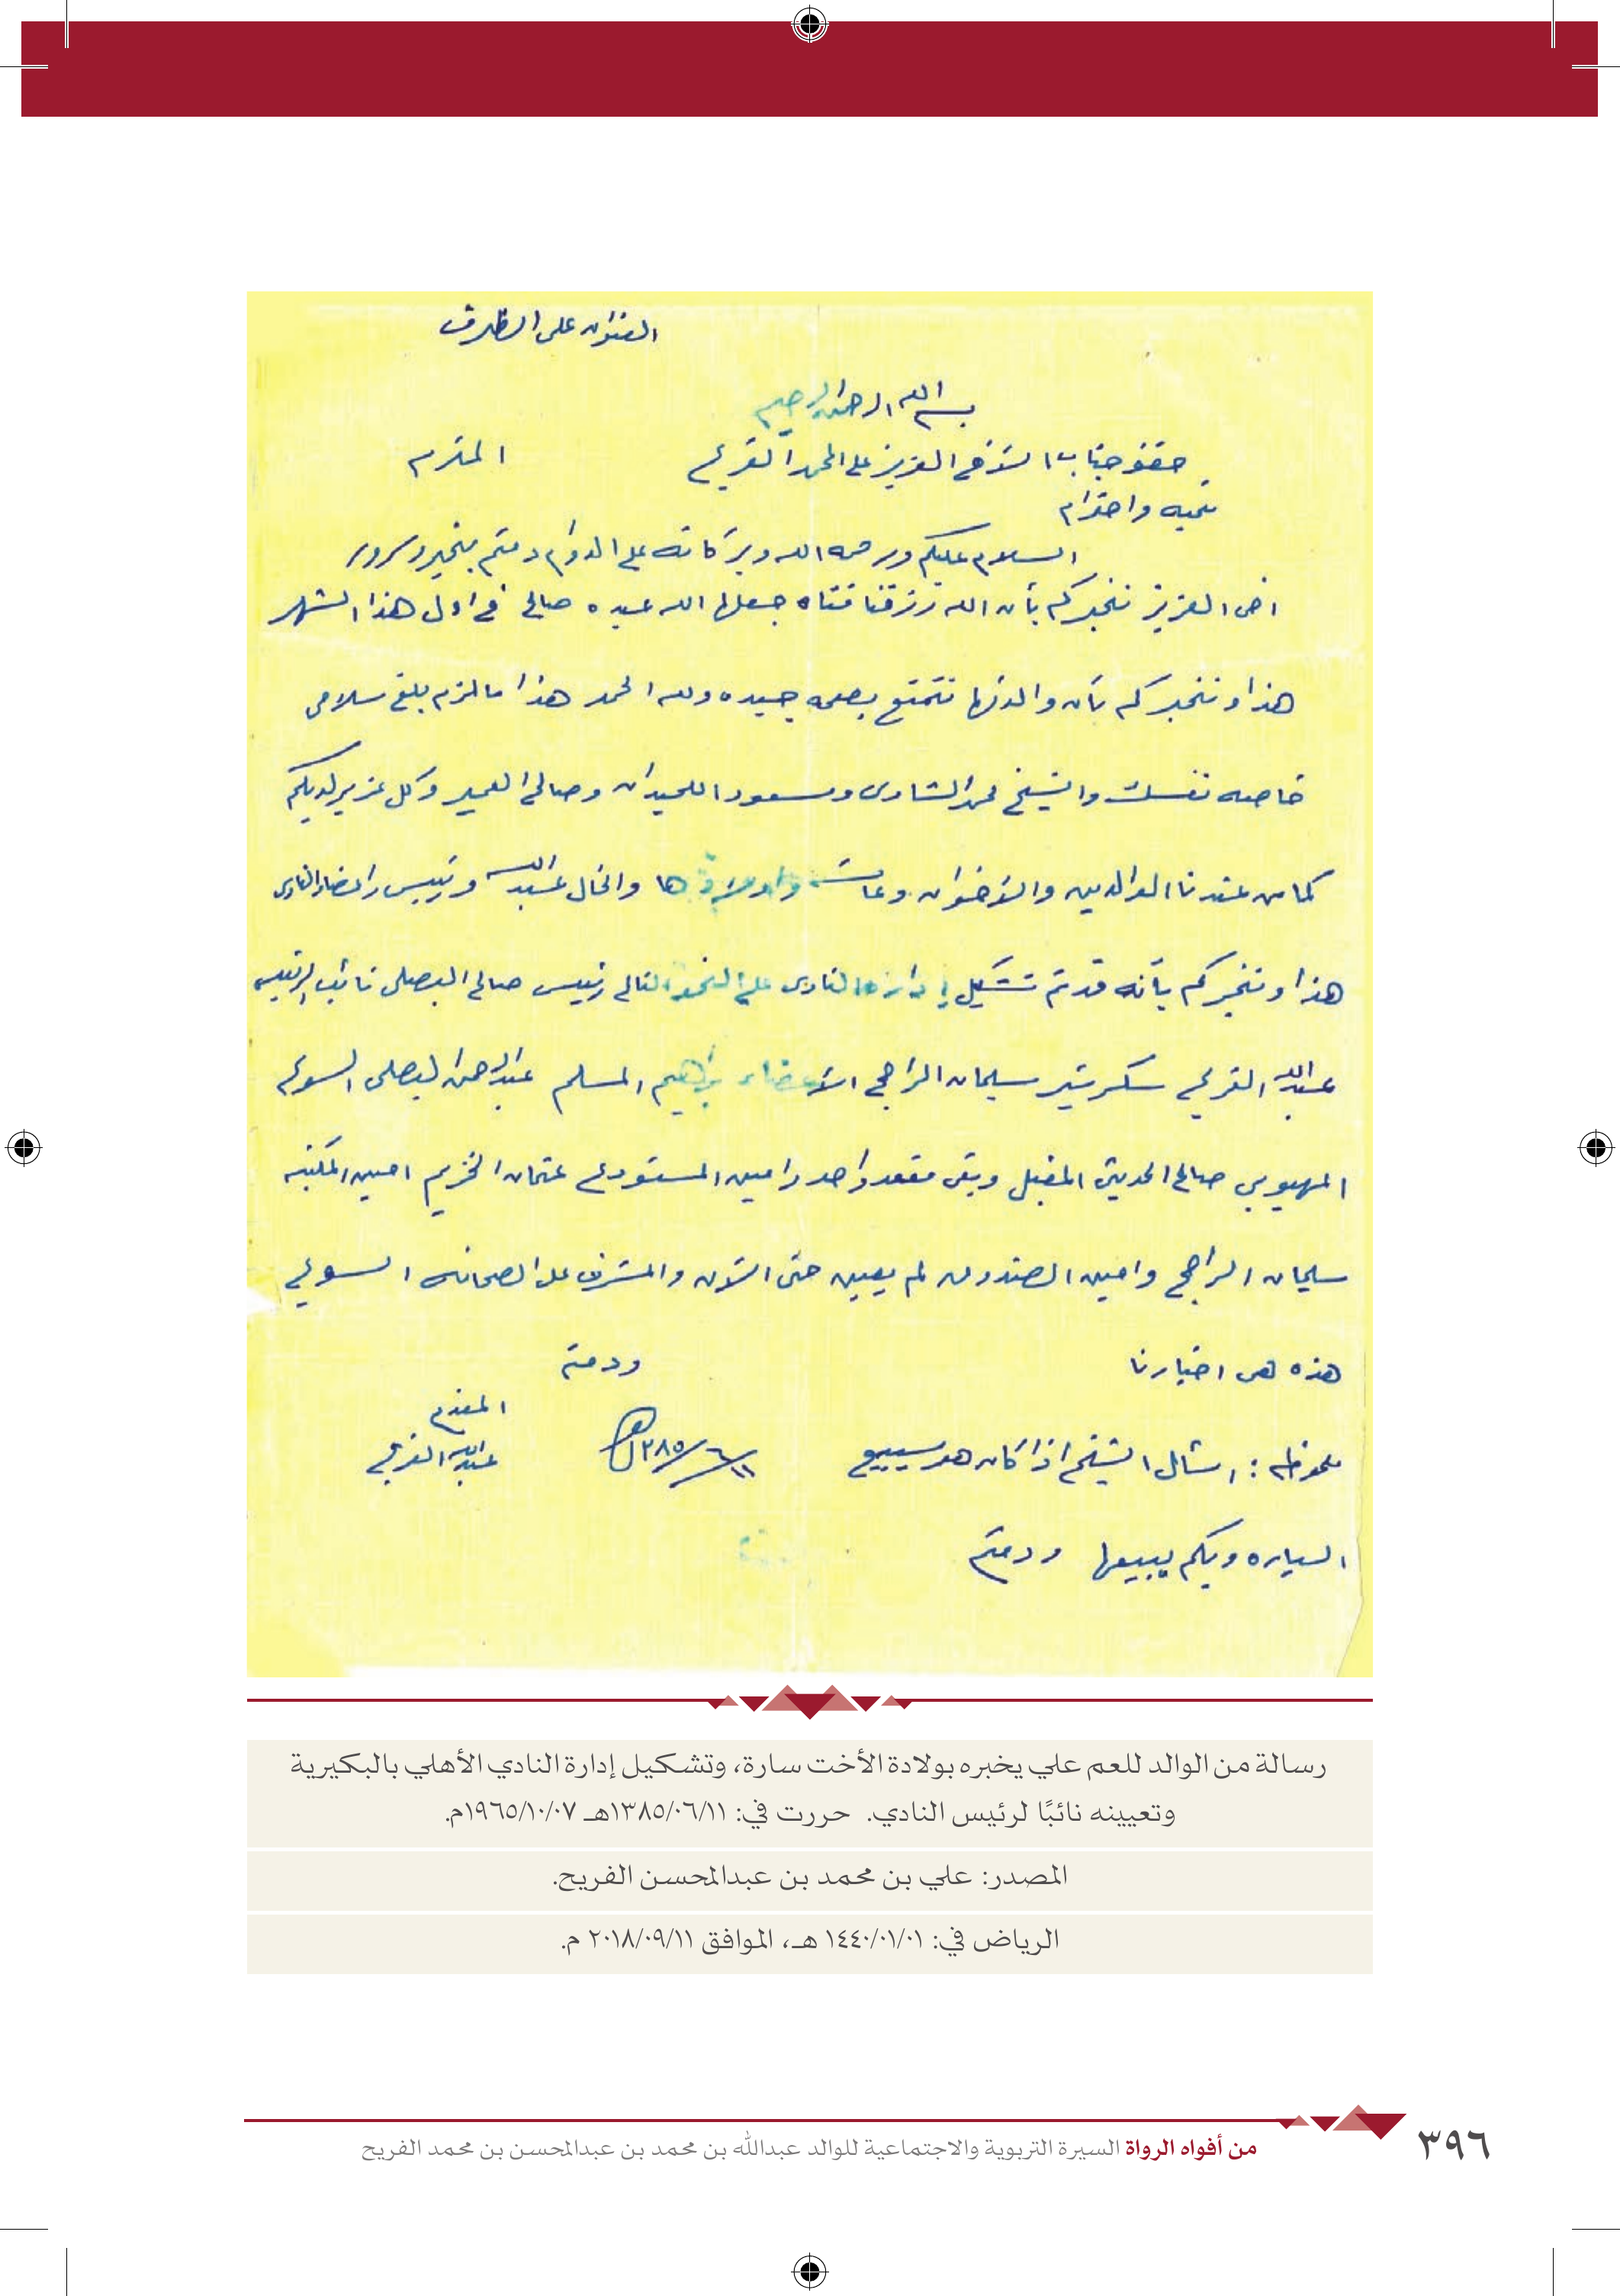 العنوان على الظرف
بسم الله الرحمن الرحيم
حضرة جناب الأخ العزيز علي المحمد الفريح المحترم
تحيه واحترام
السلام عليكم ورحمه الله وبركاته على الدوام دمتم بخير وسرور
اخى العزيز نخبركم بأن الله رزقنا فتاه جعلها الله عبده صالح في اول هذا الشهر
هذا ونخبركم بأن والدتها تتمتع بصحه جيده ولله الحمد هذا مالزم بلغ سلامى
خاصه نفسك والشيخ محمد الشاوى ومسعود اللحيدان وصالح العمير وكل عزيز لديكم
كما من عندنا الوالدين والأخوان وعائشه واولادها والخال عبدالله ورئيس واعضاء النادى
هذا ونخبركم بأنه قد تم تشكيل إدارة النادى على النحو التالى رئيس صالح البصلى نائب الرئيس
عبدالله الفريح سكرتير سليمان الراجحي الأعضاء براهيم المسلم عبدالرحمن البصلى السويح
المهيوبي صالح الحديثي المقبل وبقى مقعد واحد وامين المستودع عثمان الخزيم امين المكتبه
سليمان الراجحي وامين الصندوق لم يعين حتى الأن والمشرف على الصحافه السويح
هذه هى اخبارنا ودمتم
المقدم
ملحوظه : اسأل الشيخ اذا كان هو سيبيع ١٣٨٥/٦/١١هـ عبدالله الفريح
السياره وبكم يبيعها ودمتم
رسالة من الوالد للعم علي يخبره بولادة الأخت سارة، وتشكيل إدارة النادي الأهلي بالبكيرية
وتعيينه نائبًا لرئيس النادي. حررت في: ١٣٨٥/٠٦/١١هـ ١٩٦٥/١٠/٠٧م.
المصدر: علي بن محمد بن عبدالمحسن الفريح.
الرياض في: ١٤٤٠/٠١/٠١ هـ، الموافق ٢٠١٨/٠٩/١١ م.
من أفواه الرواة السيرة التربوية والاجتماعية للوالد عبدالله بن محمد بن عبدالمحسن بن محمد الفريح ٣٩٦